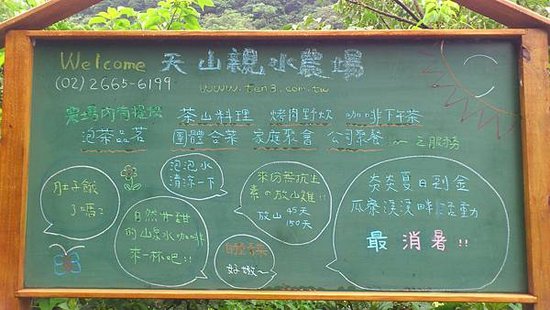 Welcome 天山親水農場
(02) 2665-6199
www.ten3.com.tw
農場內有提供 茶山料理 烤肉野炊 咖啡下午茶
泡茶品茗 團體合菜 家庭聚會 公司聚餐 之服務
肚子餓
了嗎?
自然甘甜
的山泉水咖啡
來一杯吧!!
泡泡水
清涼一下
來份無抗生
素の放山雞!!
放山 45天
150天
好嫩~
炎炎夏日到金
瓜寮溪溪畔活動
最消暑!!